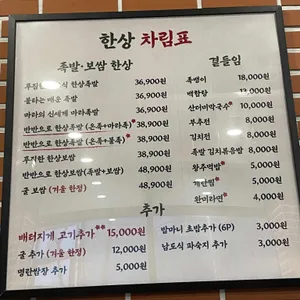 한상 차림표
족발·보쌈 한상
한상족발 36,900원
불타는 매운 족발 36,900원
마라의 신세계 마라족발 36,900원
반반으로 한상족발 (온족+마라족)* 38,900원
반반으로 한상족발 (온족+불족)* 38,900원
한상보쌈 38,900원
반반으로 한상보쌈(족발+보쌈) 48,900원
굴 보쌈 (겨울 한정) 48,900원
곁들임
쪽쟁이 18,000원
백합탕 12,000원
산더미막국수* 10,000원
부추전 8,000원
김치전 8,000원
족발 김치볶음밥 8,000원
왕주먹밥* 5,000원
계란찜* 5,000원
완미라면* 4,000원
추가
배터지게 고기추가** 15,000원
굴 추가 (겨울 한정) 12,000원
명란쌈장 추가 5,000원
밥마니 초밥추가 (6P) 3,000원
남도식 파숙지 추가 3,000원